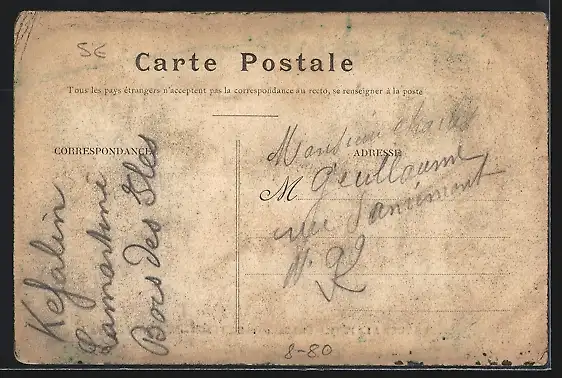 5E
Carte Postale
Tous les pays étrangers n'acceptent pas la correspondance au recto, se renseigner à la poste
CORRESPONDANCE
ADRESSE
Kefalin
Lamartine
Bois des Iles
Monsieur Charles
M Geullaume
rue
8-80